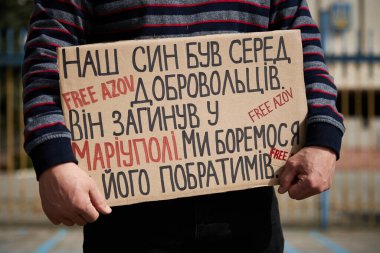 НАШ СИН БУВ СЕРЕД
FREE AZOV ДОБРОВОЛЬЦІВ.
ВІН ЗАГИНУВ У FREE AZOV
МАРІУПОЛІ. МИ БОРЕМОСЯ ЗА
ЙОГО ПОБРАТИМІВ. FREE